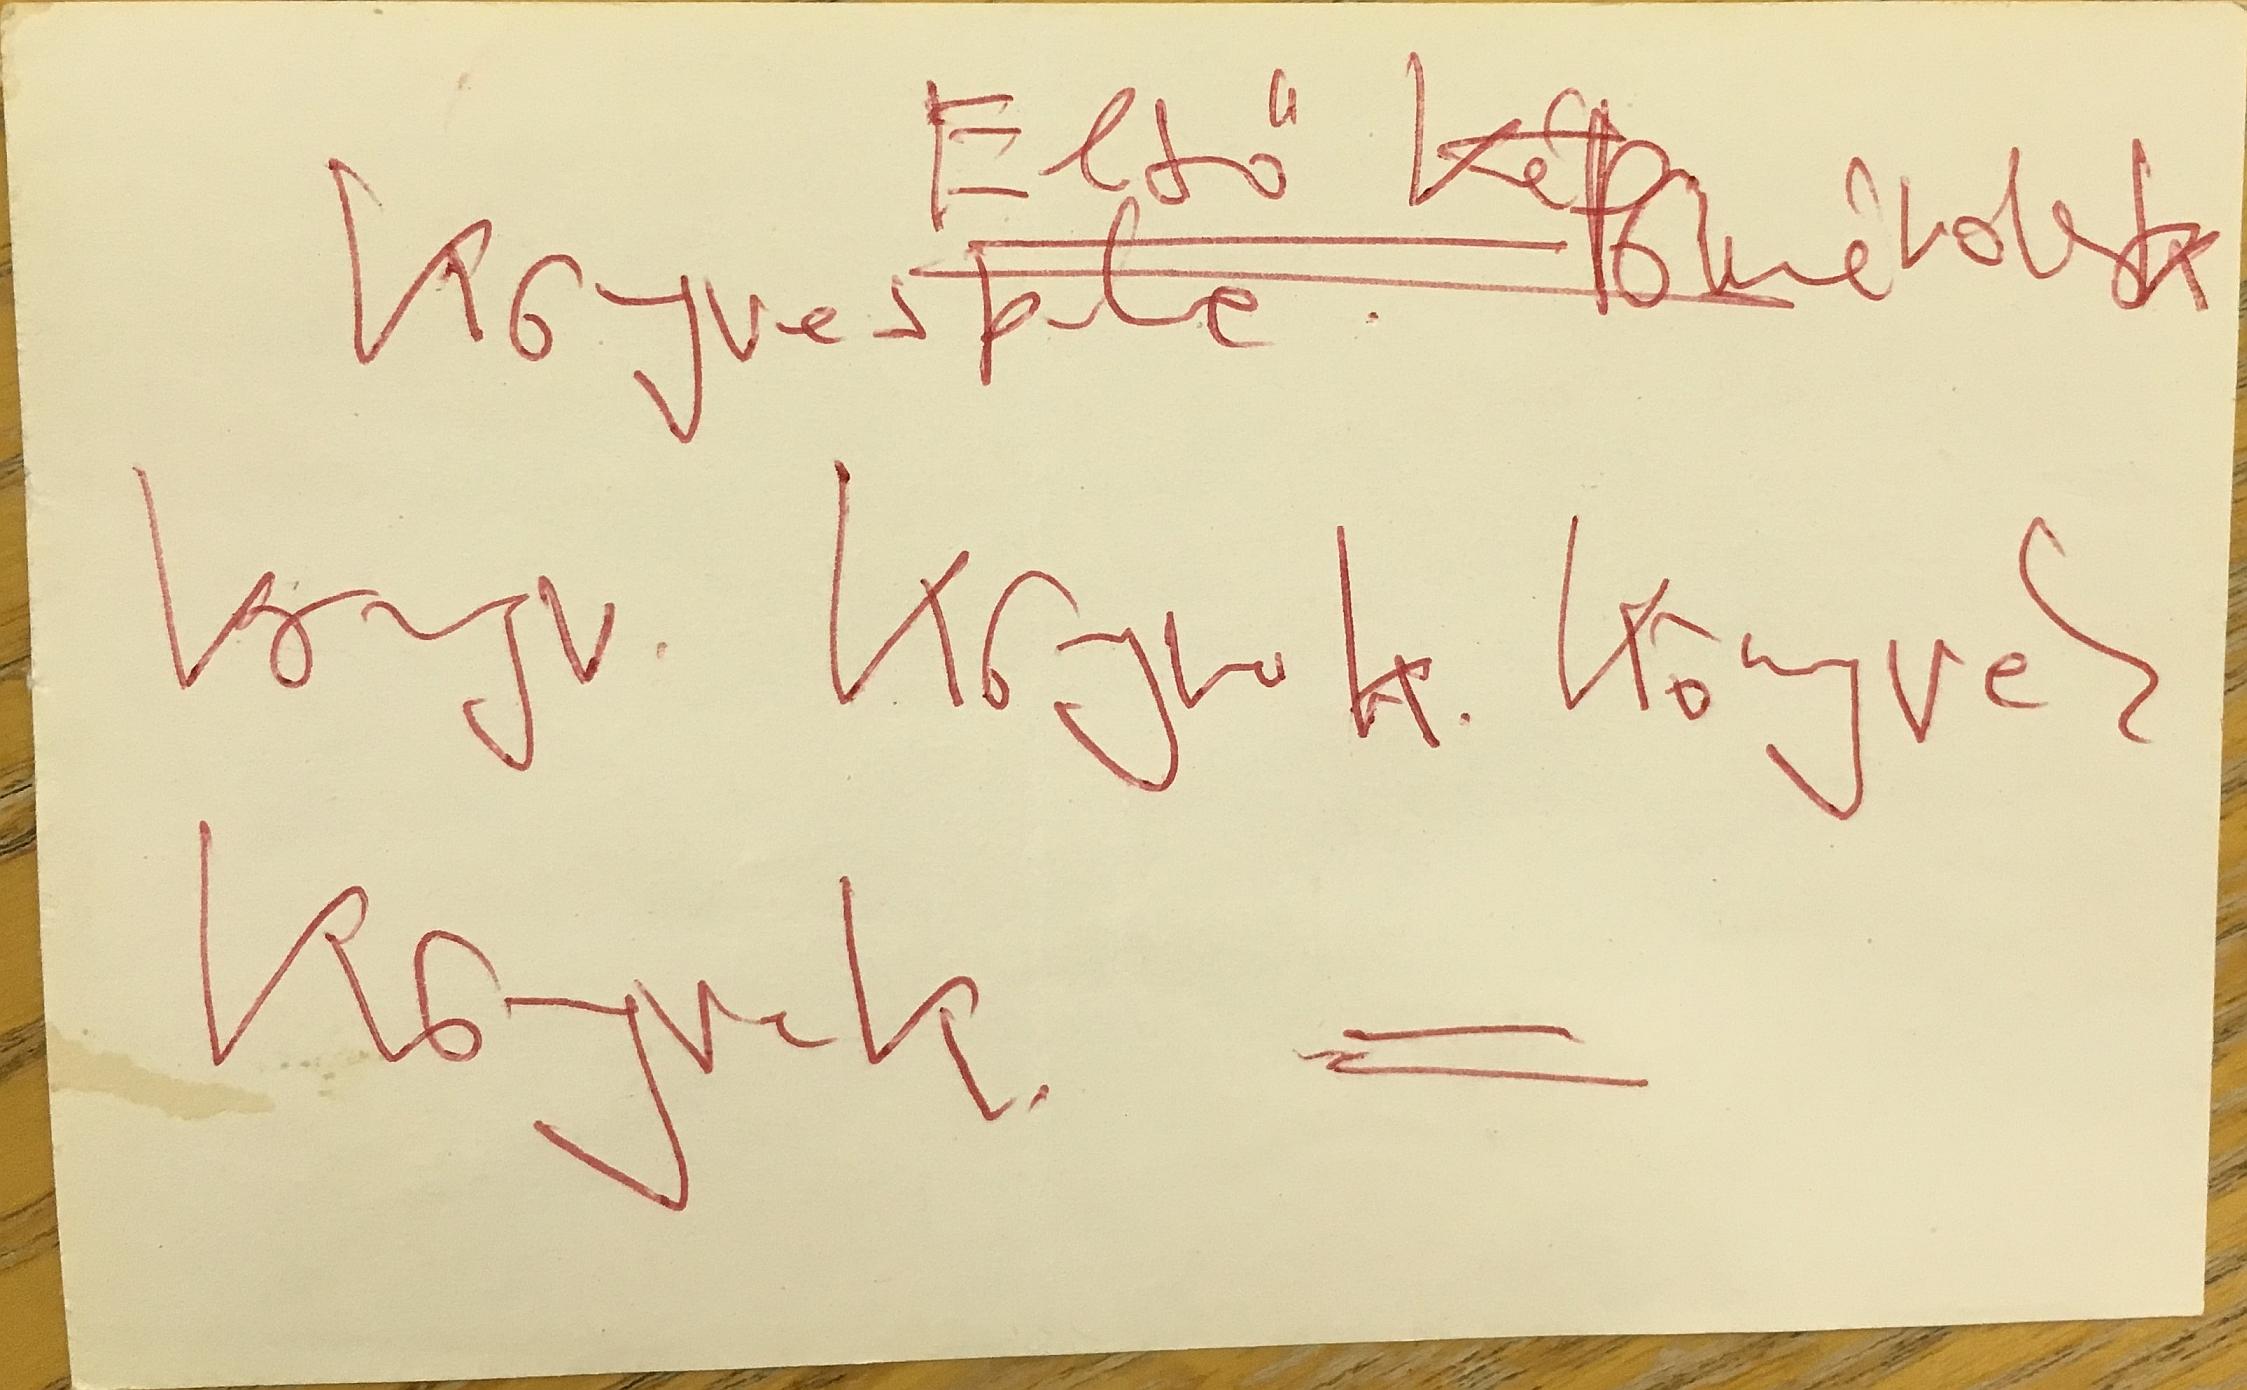 Első kép
Könyvespolc.
Könyv. Könyvek. Könyvek
Könyvek.